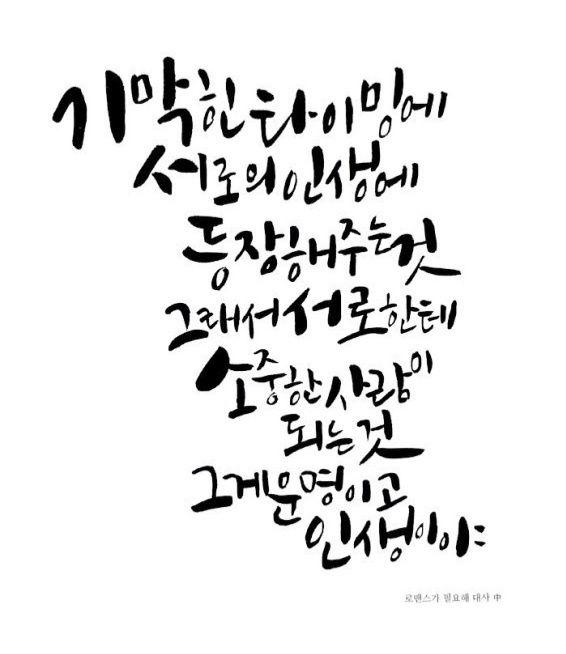 기막힌 타이밍에
서로의 인생에
등장해주는것
그래서 서로한테
소중한 사람이
되는것
그게 운명이고
인생이야
로맨스가 필요해 대사 中